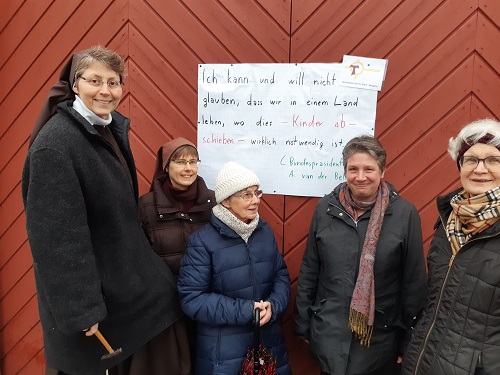 Ich kann und will nicht
glauben, dass wir in einem Land
leben, wo dies – Kinder ab-
schieben – wirklich notwendig ist
(Bundespräsident
A. van der Be